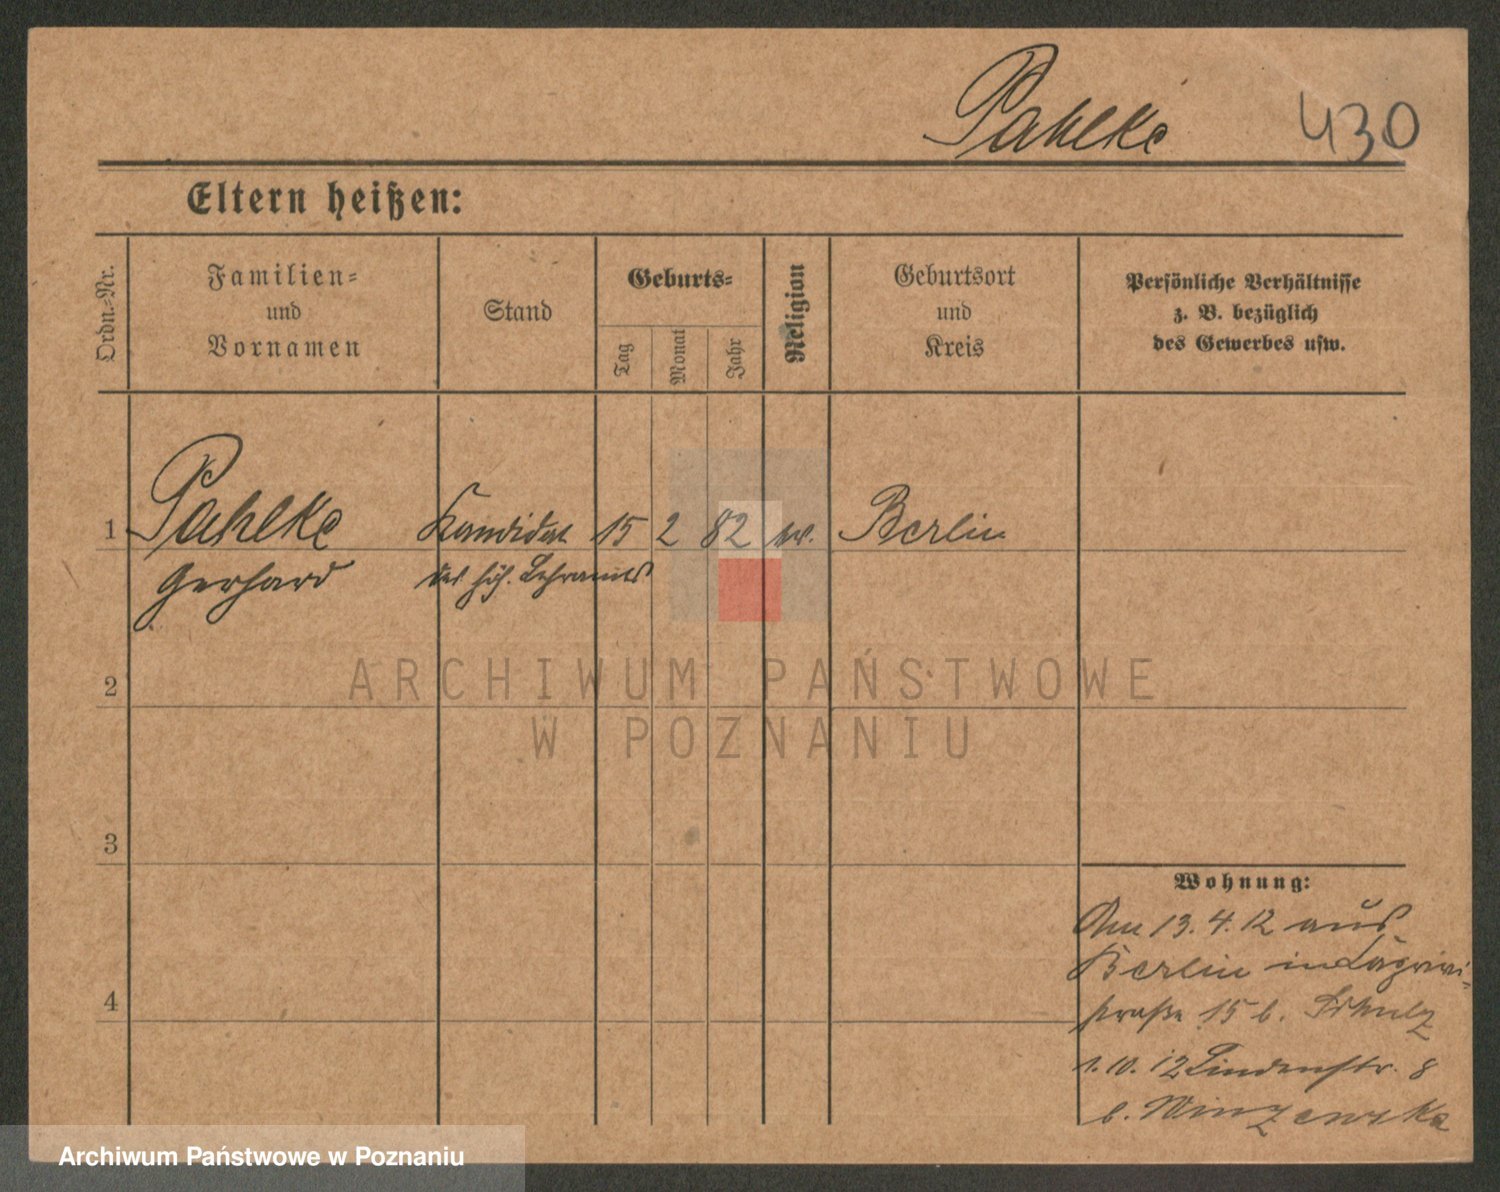 Pahlke 430
Eltern heißen:
Ordn.-Nr.
Familien-
und
Vornamen
Stand
Geburts-
Tag
Monat
Jahr
Religion
Geburtsort
und
Kreis
Persönliche Verhältnisse
z. B. bezüglich
des Gewerbes usw.
1 Pahlke Kandidat 15 2 82 ev. Berlin
Gerhard des höh. Lehramts
2
3
4
Wohnung:
Am 13. 4. 12 aus
Berlin in
straße 15 b. Schulz
1. 10. 12 Lindenstr. 8
b.
ARCHIWUM PAŃSTWOWE
W POZNANIU
Archiwum Państwowe w Poznaniu